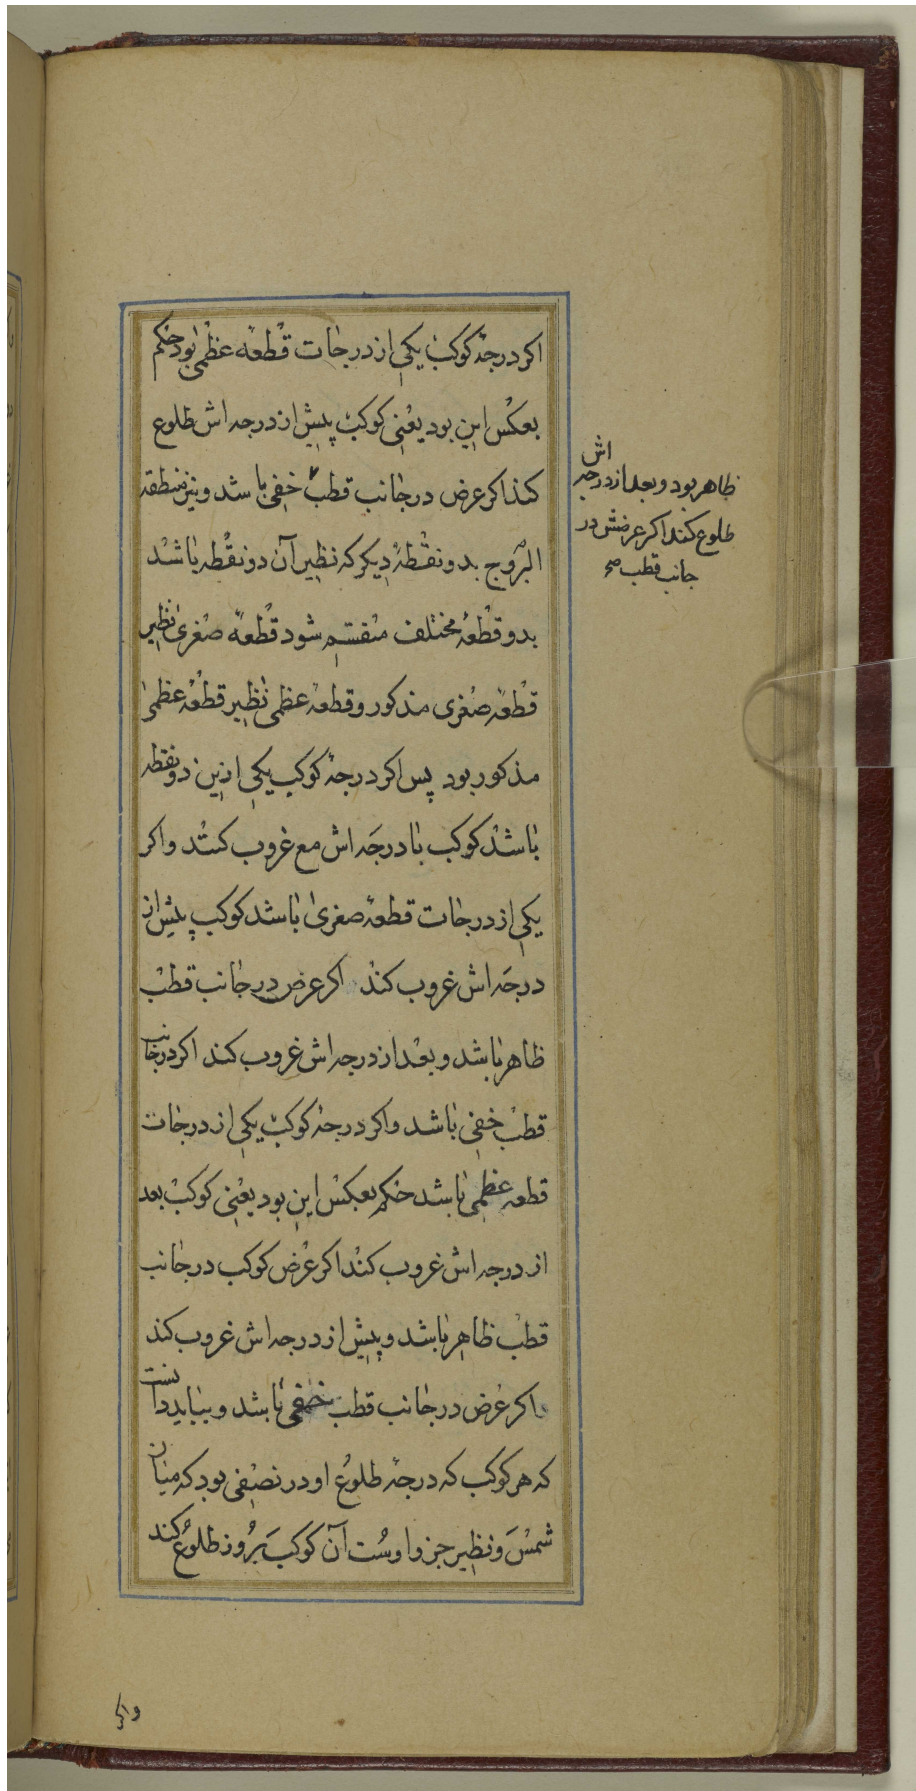 اکر درجهٔ کوکب یکی از درجات قطعهٔ عظمی بود حکم
بعکس این بود یعنی کوکب پیش از درجه اش طلوع
کند اکر عرض در جانب قطب خفی باشد و نیز منطقة
البروج بدو نقطهٔ دیکر که نظیر آن دو نقطه باشد
بدو قطعهٔ مختلف منقسم شود قطعهٔ صغری نظیر
قطعهٔ صغری مذکور و قطعهٔ عظمی نظیر قطعهٔ عظمی
مذکور بود پس اکر درجهٔ کوکب یکی ازین دو نقطه
باشد کوکب با درجه اش مع غروب کند و اکر
یکی از درجات قطعهٔ صغری باشد کوکب پیش از
درجه اش غروب کند اکر عرض در جانب قطب
ظاهر باشد و بعد از درجه اش غروب کند اکر در جانب
قطب خفی باشد و اکر درجهٔ کوکب یکی از درجات
قطعه عظمی باشد حکم بعکس این بود یعنی کوکب بعد
از درجه اش غروب کند اکر عرض کوکب در جانب
قطب ظاهر باشد و پیش از درجه اش غروب کند
اکر عرض در جانب قطب خفی باشد و بباید دانست
که هر کوکب که درجهٔ طلوع او در نصفی بود که میان
شمس و نظیر جزو اوست آن کوکب بروز طلوع کند
ظاهر بود و بعد از درجه اش
طلوع کند اکر عرضش در
جانب قطب صح
واکر